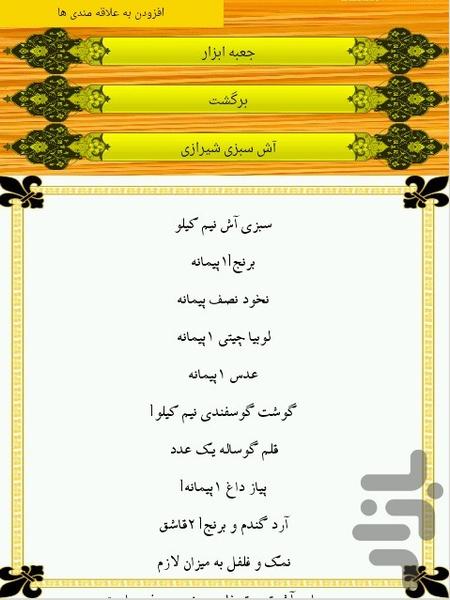 افزودن به علاقه مندی ها
جعبه ابزار
برگشت
آش سبزی شیرازی
سبزی آش نیم کیلو
برنج|۱پیمانه
نخود نصف پیمانه
لوبیا چیتی ۱پیمانه
عدس ۱پیمانه
گوشت گوسفندی نیم کیلو|
قلم گوساله یک عدد
پیاز داغ ۱پیمانه|
آرد گندم و برنج|۲قاشق
نمک و فلفل به میزان لازم
بازار